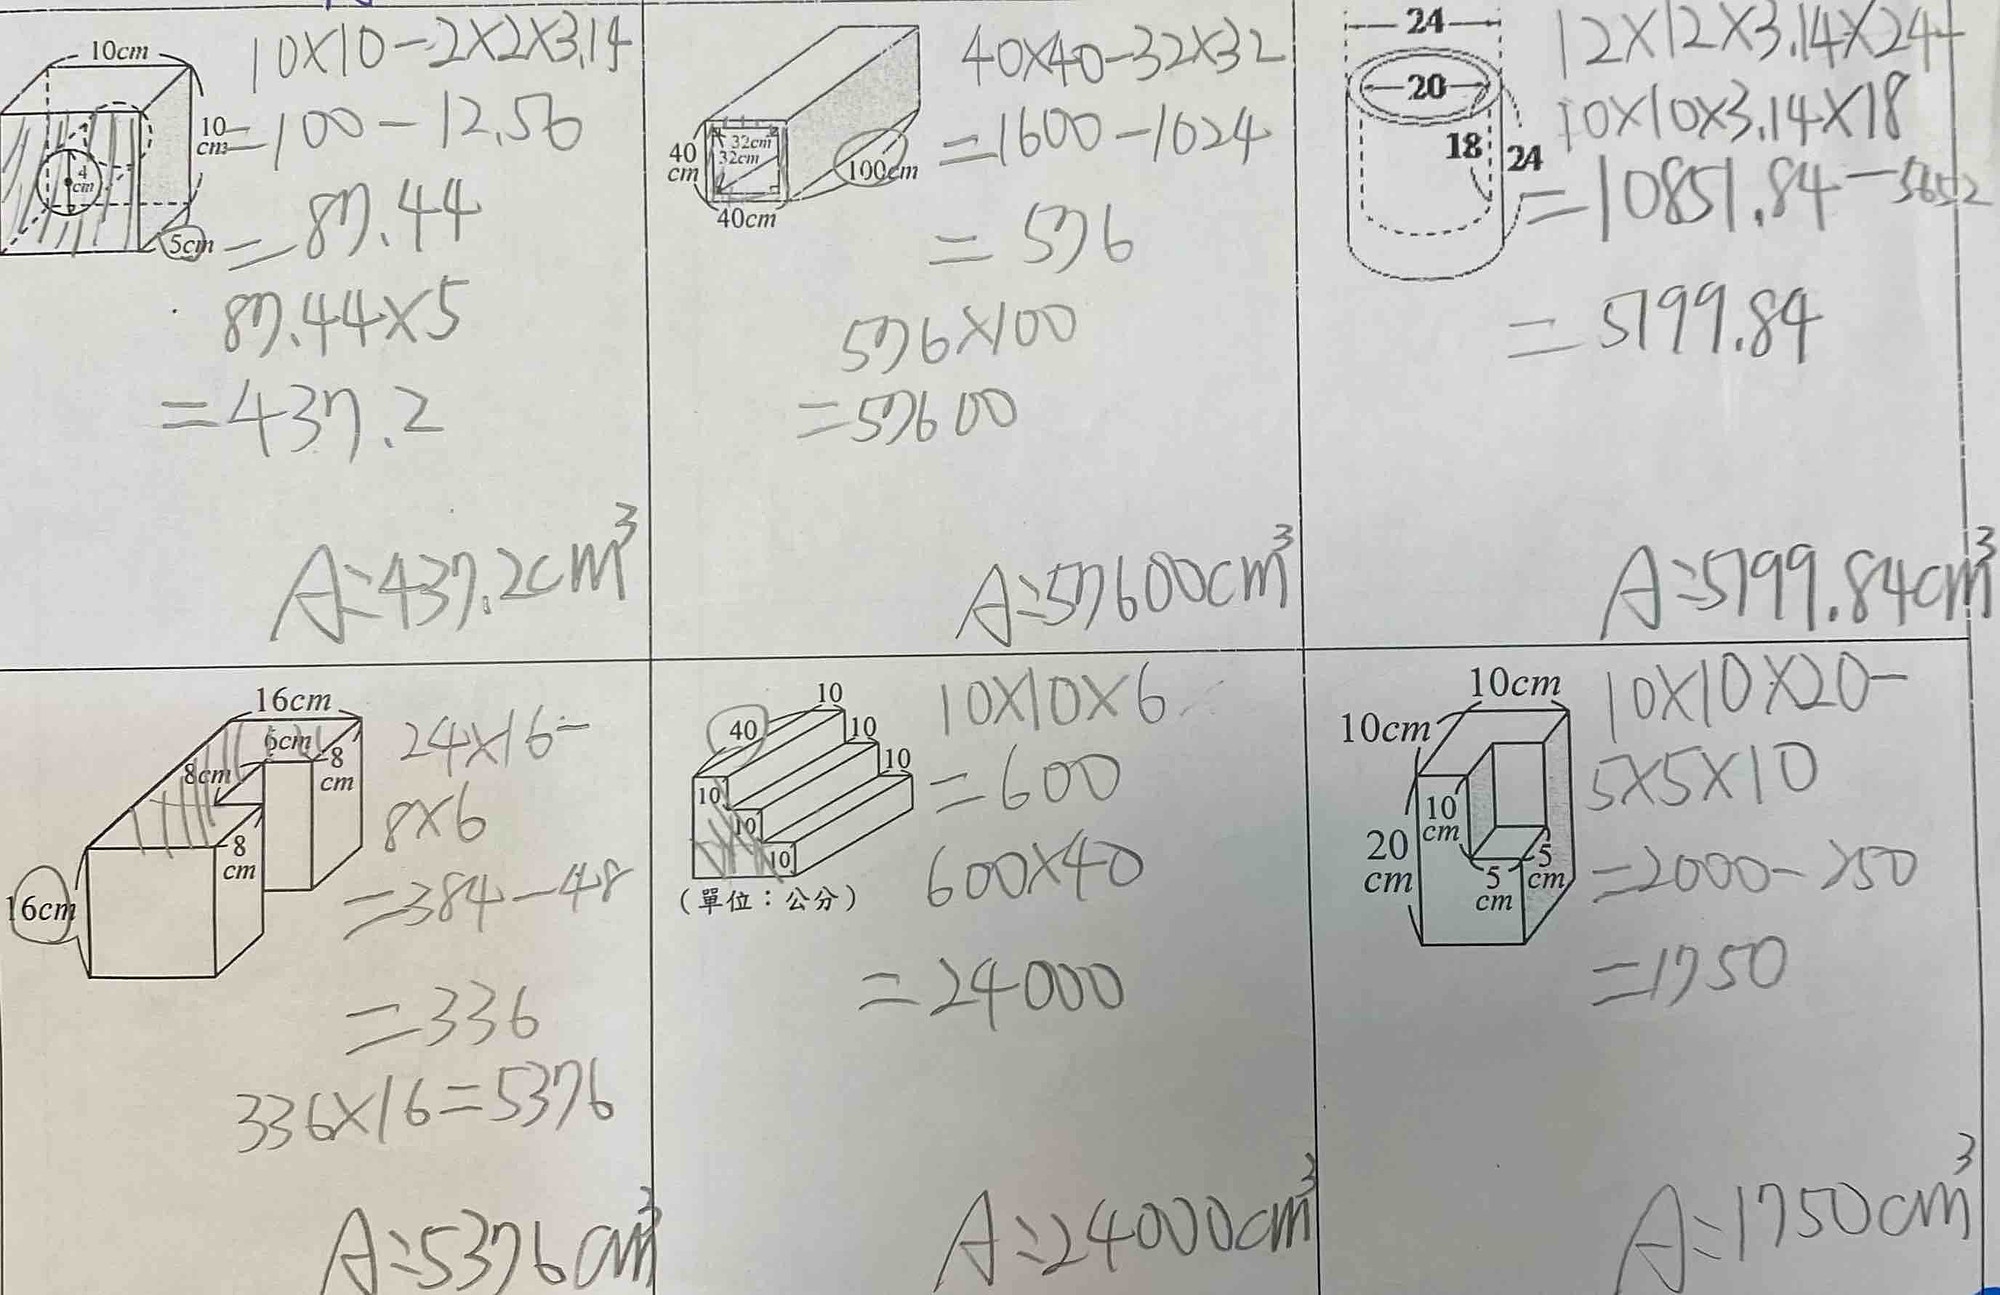 10cm
10
cm
4
cm
5cm
10×10-2×2×3.14
=100-12.56
=87.44
87.44×5
=437.2
A:437.2cm³
40
cm
32cm
32cm
100cm
40cm
40×40-32×32
=1600-1024
=576
576×100
=57600
A:57600cm³
24
20
18
24
12×12×3.14×24-
10×10×3.14×18
=10851.84-5652
=5199.84
A:5199.84cm³
16cm
6cm
8cm
8
cm
8
cm
16cm
24×16-
8×6
=384-48
=336
336×16=5376
A:5376cm³
10
40
10
10
10
10
10
(單位：公分)
10×10×6
=600
600×40
=24000
A:24000cm³
10cm
10cm
10
cm
20
cm
5
cm
5
cm
10×10×20-
5×5×10
=2000-250
=1750
A:1750cm³